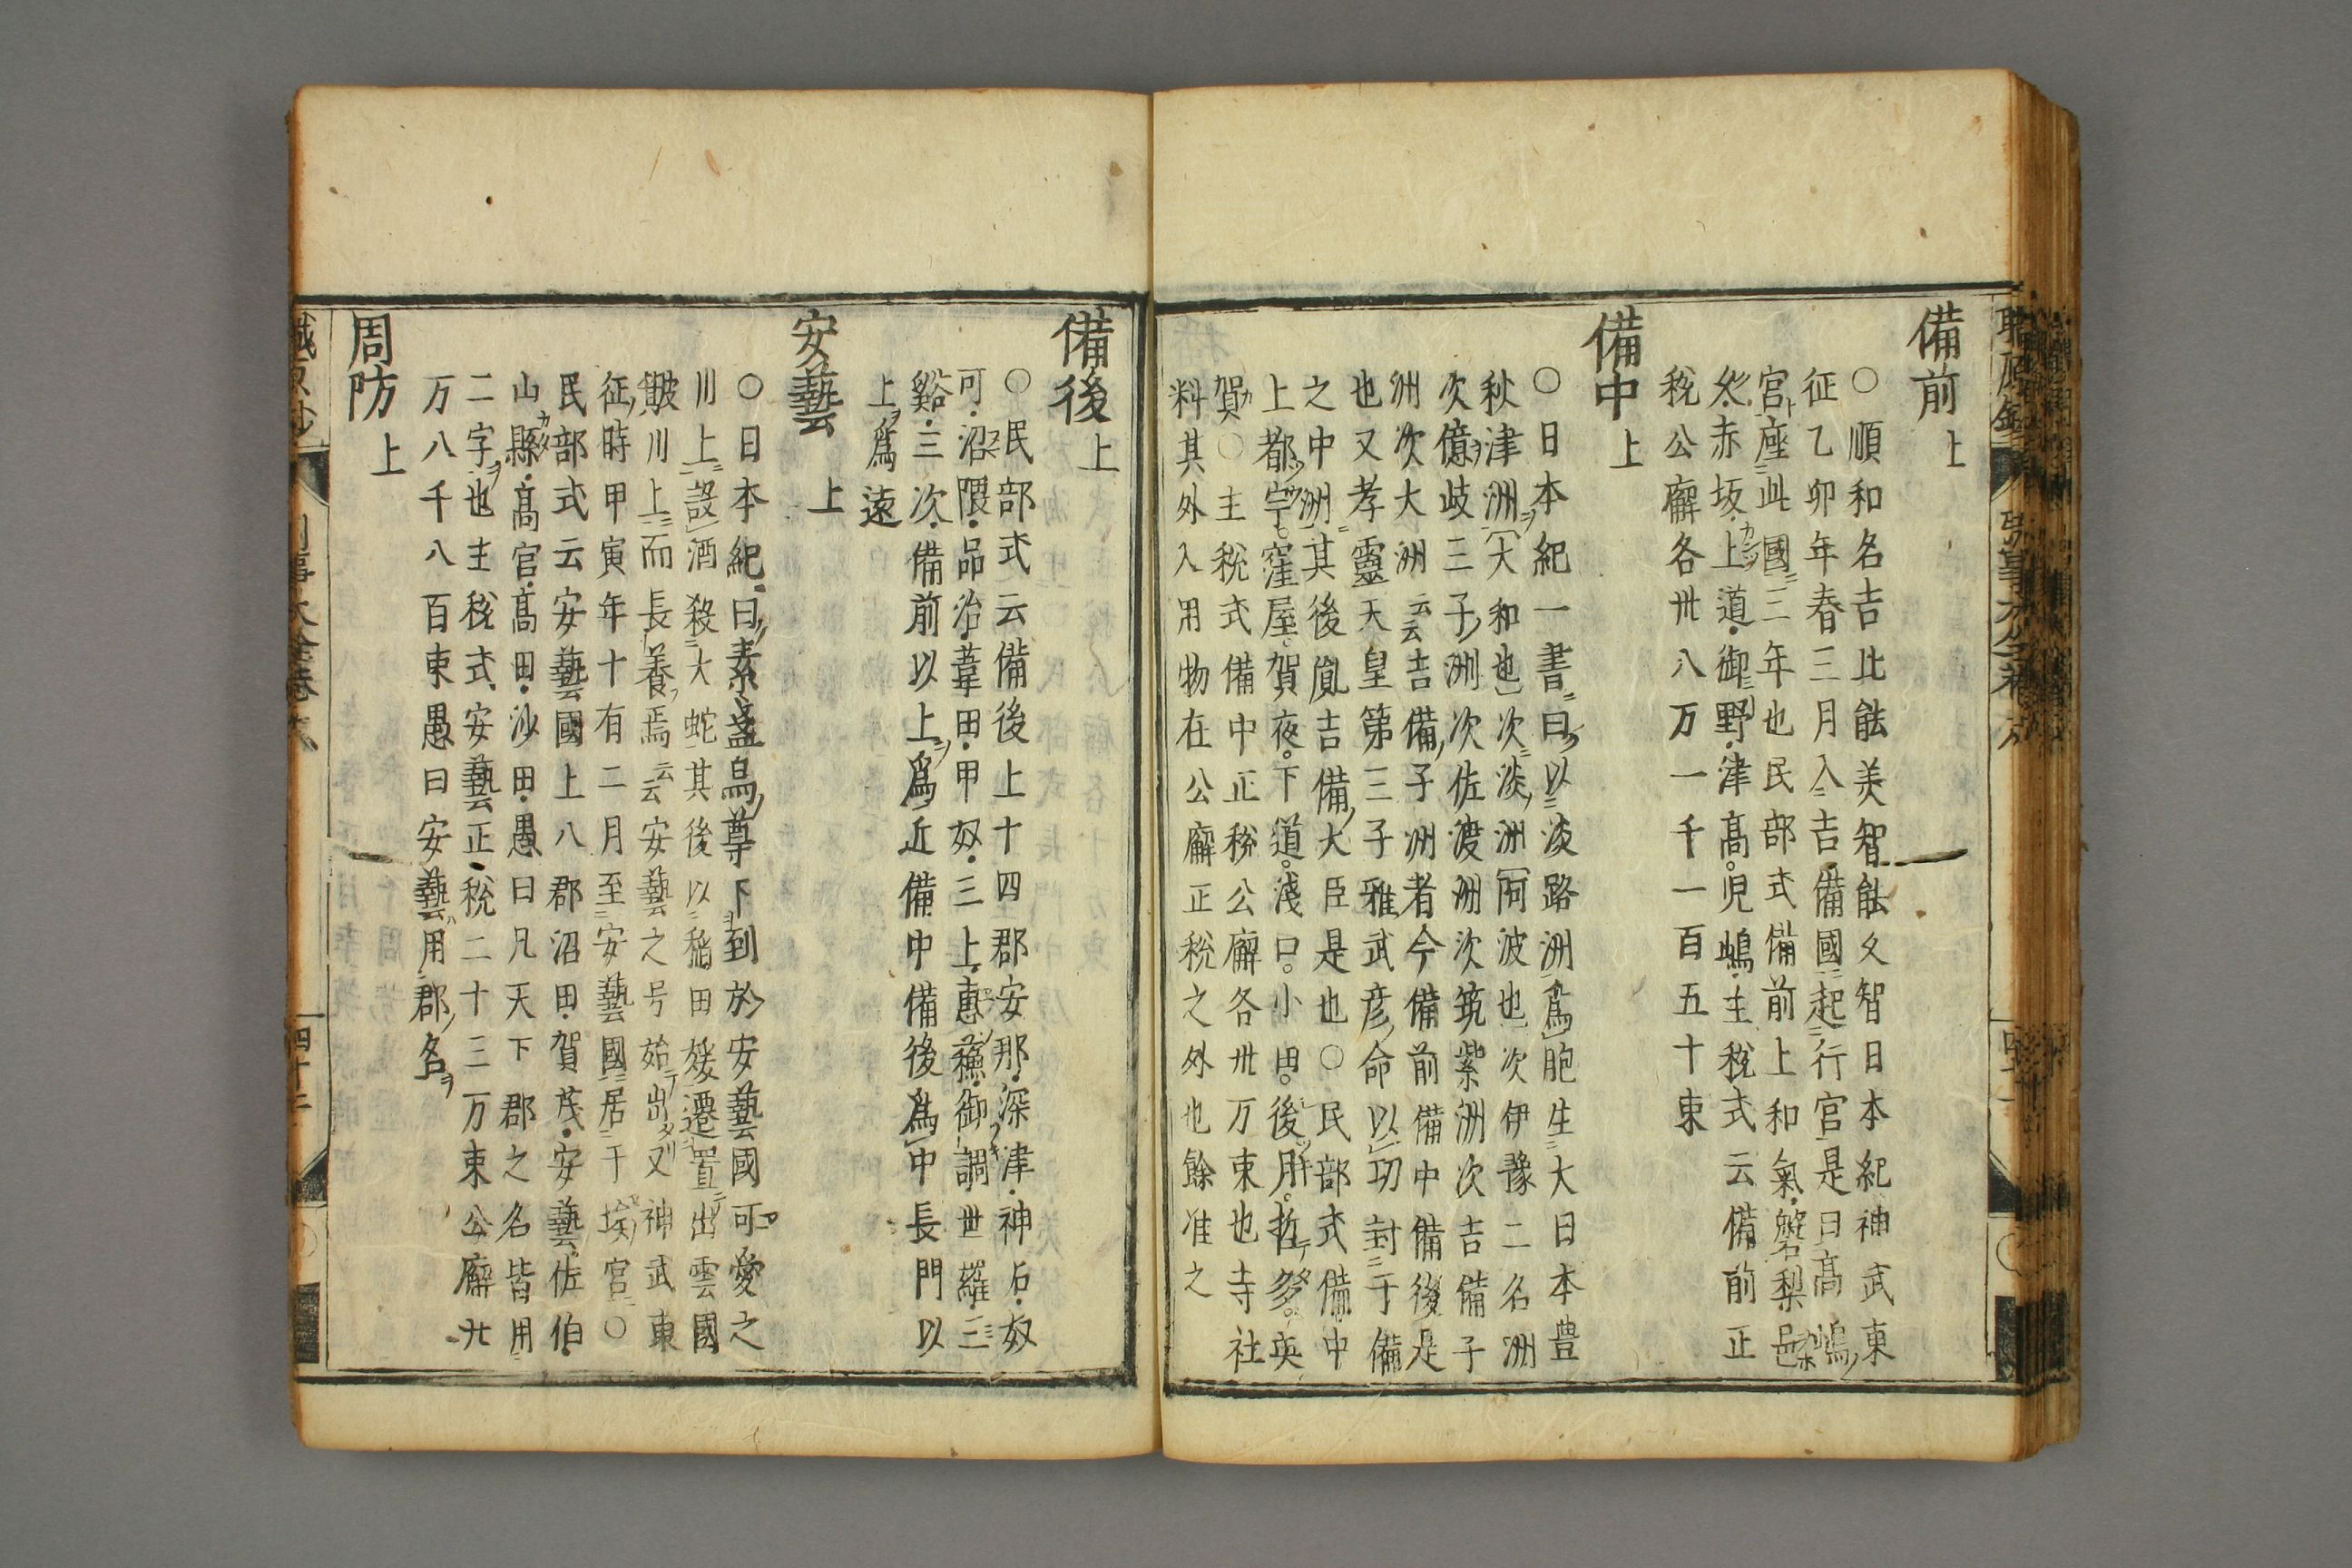 備前 上
○順和名吉比䏻美智䏻久智日本紀神武東
征乙卯年春三月入吉備國起行宮是曰髙嶋
宮座此國三年也民部式備前上和氣磐梨邑
久赤坂上道御野津髙児嶋主稅式云備前正
稅公廨各卅八万一千一百五十束
備中 上
○日本紀一書曰以淡路洲爲胞生大日本豊
秋津洲大和也次淡洲阿波也次伊豫二名洲
次億歧三子洲次佐渡洲次筑紫洲次吉備子
洲次大洲云云吉備子洲者今備前備中備後是
也又孝靈天皇第三子雅武彦命以功封于備
之中洲其後胤吉備大臣是也○民部式備中
上都宇窪屋賀夜下道淺口小田後月哲多英
賀○主稅式備中正稅公廨各卅万束也寺社
料其外入用物在公廨正稅之外也餘准之
備後 上
○民部式云備後上十四郡安那深津神石奴
可沼隈品治葦田甲奴三上惠蘓御調世羅三
谿三次備前以上爲近備中備後爲中長門以
上爲遠
安藝 上
○日本紀曰素盞烏尊下到於安藝國可愛之
川上設酒殺大蛇其後以稲田媛遷置出雲國
簸川上而長養焉云云安藝之号始出又神武東
征時甲寅年十有二月至安藝國居于埃宮○
民部式云安藝國上八郡沼田賀茂安藝佐伯
山縣髙宮髙田沙田愚曰凡天下郡之名皆用
二字也主稅式安藝正稅二十三万束公廨廾
万八千八百束愚曰安藝用郡名
周防 上